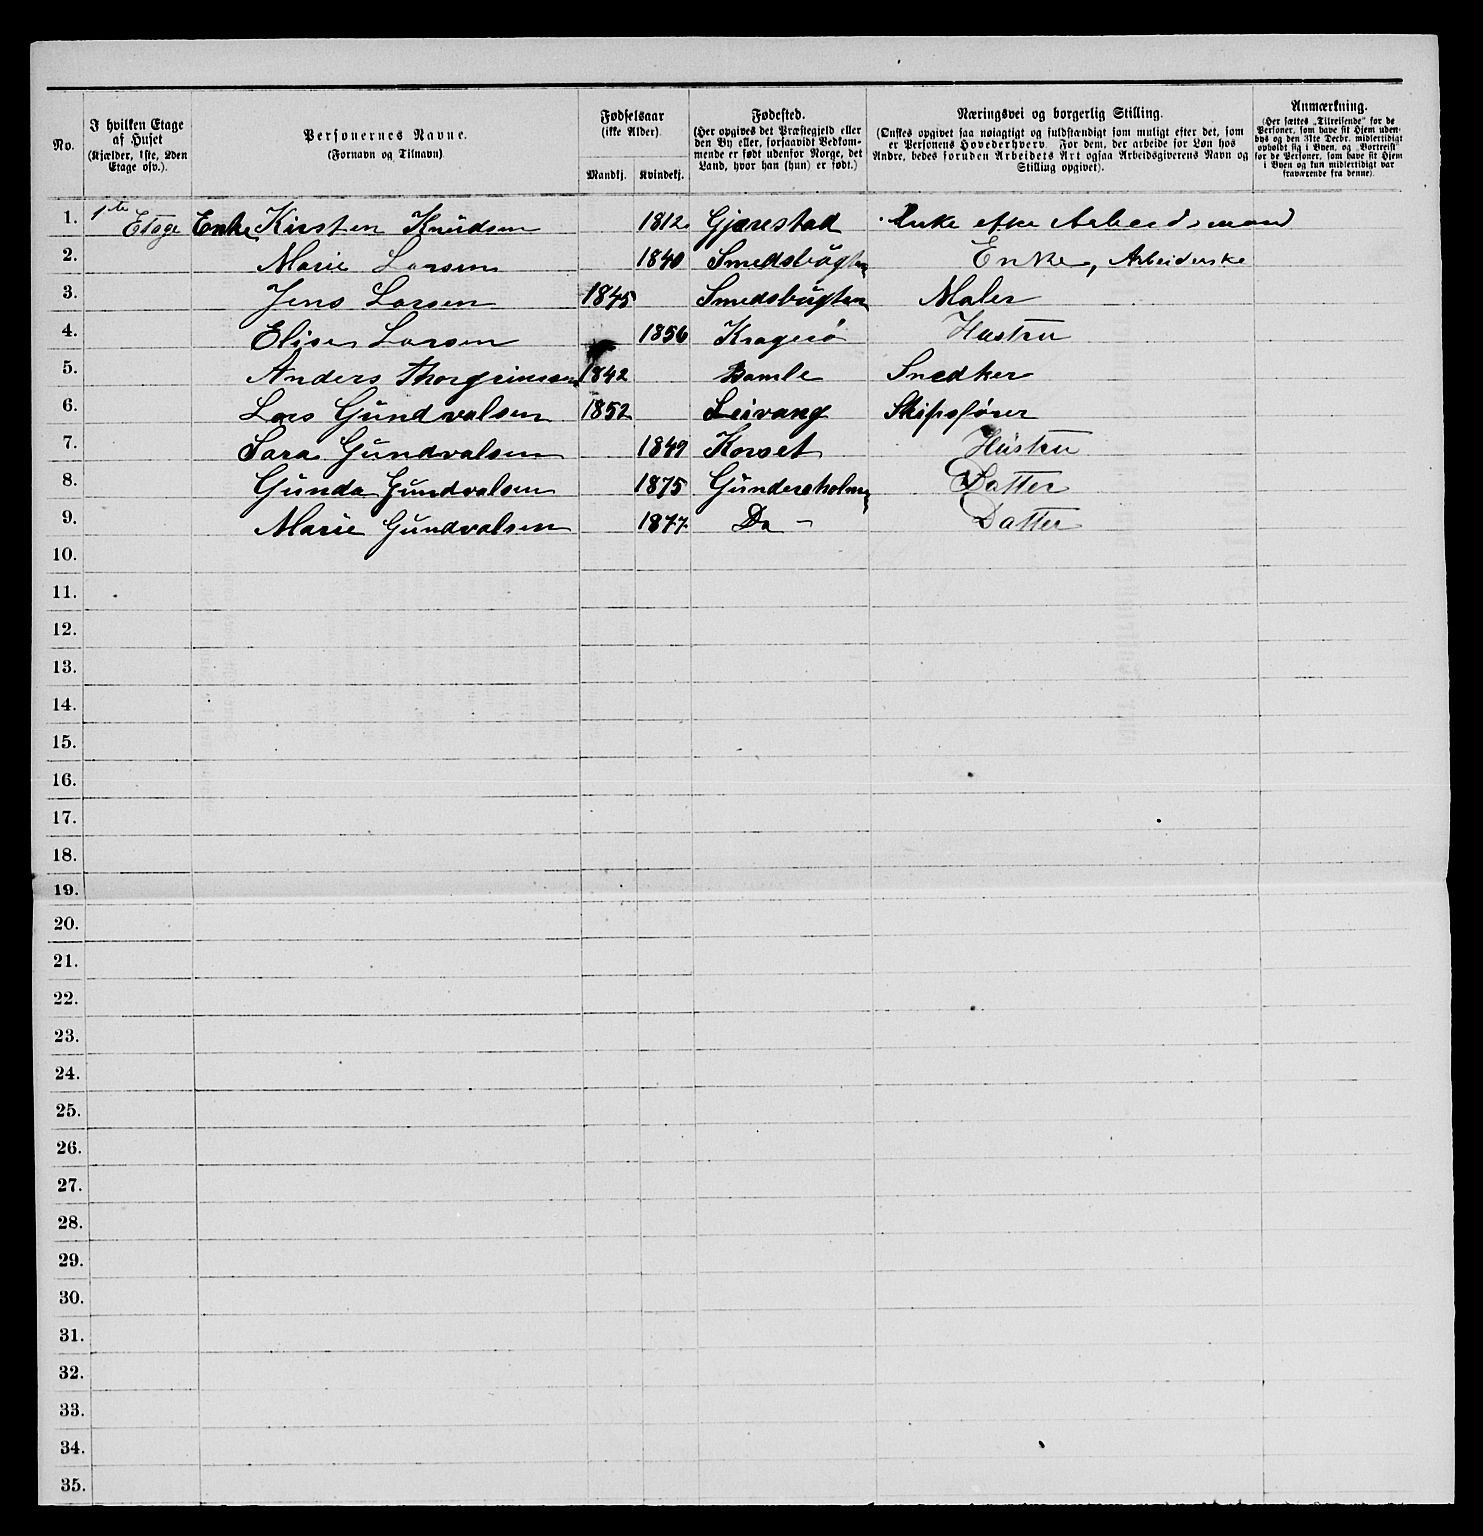 No.
I hvilken Etage af Huset (Kjælder, 1ste, 2den Etage osv.).
Personernes Navne. (Fornavn og Tilnavn)
Fødselsaar (ikke Alder). Mandkj. Kvindekj.
Fødested. (Her opgives det Præstegjeld eller den By eller, forsaavidt Vedkommende er født udenfor Norge, det Land, hvor han (hun) er født.)
Næringsvei og borgerlig Stilling. (Ønskes opgivet saa nøiagtigt og fuldstændigt som muligt efter det, som er Personens Hovederhverv. For dem, der arbeide for Løn hos Andre, bedes foruden Arbeidets Art ogsaa Arbeidsgiverens Navn og Stilling opgivet).
Anmærkning. (Her sættes „Tilreisende“ for de Personer, som have sit Hjem udenbys og den 31te Decbr. midlertidigt opholdt sig i Byen, og „Bortreist“ for de Personer, som have sit Hjem i Byen og kun midlertidigt var fraværende fra denne).
1. 1ste Etage Enke Kirsten Knudsen 1812 Gjærestad Enke efter Arbeidsmand
2. Marie Larsen 1840 Smedsbugten Enke, Arbeiderske
3. Jens Larsen 1845 Smedsbugten Maler
4. Elise Larsen 1856 Kragerö Hustru
5. Anders Thorgrimsen 1842 Bamle Snedker
6. Lars Gundvalsen 1852 Leivang Skipsfører
7. Sara Gundvalsen 1849 Korset Hustru
8. Gunda Gundvalsen 1875 Gundersholmen Datter
9. Marie Gundvalsen 1877 Do - Datter
10.
11.
12.
13.
14.
15.
16.
17.
18.
19.
20.
21.
22.
23.
24.
25.
26.
27.
28.
29.
30.
31.
32.
33.
34.
35.